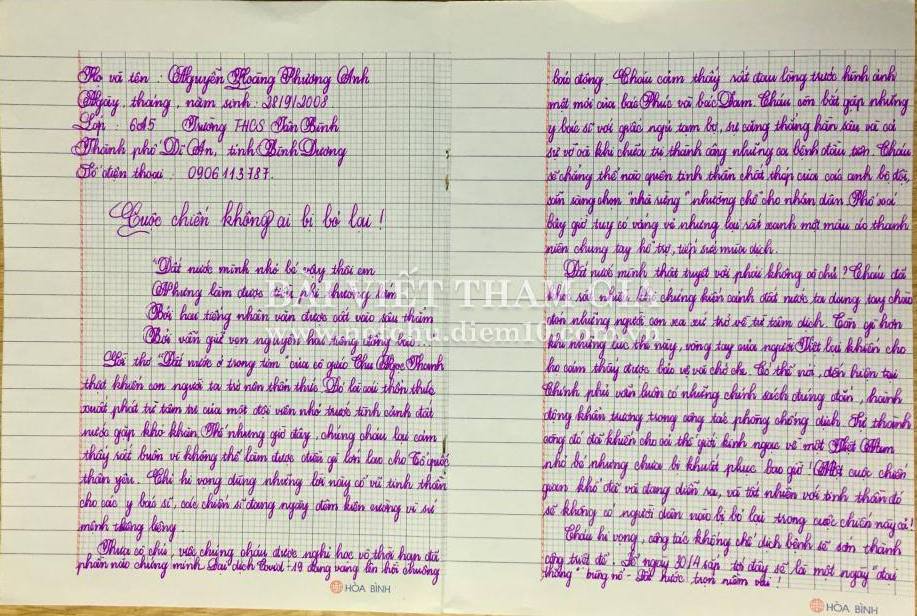 Họ và tên : Nguyễn Hoàng Phương Anh
Ngày, tháng, năm sinh : 28/9/2008
Lớp : 6A5 Trường THCS Tân Bình
Thành phố Dĩ An, tỉnh Bình Dương
Số điện thoại : 0906113787.
Cuộc chiến không ai bị bỏ lại !
"Đất nước mình nhỏ bé vậy thôi em
Nhưng làm được điều phi thường lắm
Bởi hai tiếng nhân văn được cất vào sâu thẳm
Bởi vẫn giữ vẹn nguyên hai tiếng đồng bào...
Lời thơ "Đất nước ở trong tim" của cô giáo Chu Ngọc Thanh
thật khiến con người ta trở nên thổn thức. Đó là cái thổn thức
xuất phát từ tâm trí của một đội viên nhỏ trước tình cảnh đất
nước gặp khó khăn. Thế nhưng giờ đây, chúng cháu lại cảm
thấy rất buồn vì không thể làm được điều gì lớn lao cho Tổ quốc
thân yêu. Chỉ hi vọng dùng những lời này cổ vũ tinh thần
cho các y bác sĩ, các chiến sĩ đang ngày đêm kiên cường vì sứ
mệnh thiêng liêng.
Thưa cô chú, việc chúng cháu được nghỉ học vô thời hạn đã
phần nào chứng minh Đại dịch Covid-19 đang vang lên hồi chuông
báo động. Cháu cảm thấy rất đau lòng trước hình ảnh
mệt mỏi của bác Phúc và bác Đam. Cháu còn bắt gặp những
y bác sĩ với giấc ngủ tạm bợ, sự căng thẳng hằn sâu và cả
sự vỡ oà khi chữa trị thành công những ca bệnh đầu tiên. Cháu
sẽ chẳng thể nào quên tinh thần chất thép của các anh bộ đội,
sẵn sàng chọn "nhà rừng" nhường chỗ cho nhân dân. Phố xá
bây giờ tuy có vắng vẻ nhưng lại rất xanh một màu áo thanh
niên chung tay hỗ trợ, tiếp sức mùa dịch.
Đất nước mình thật tuyệt vời phải không cô chú ? Cháu đã
khóc rất nhiều khi chứng kiến cảnh đất nước ta dang tay chào
đón những người con xa xứ trở về từ tâm dịch. Còn gì hơn
khi những lúc thế này, vòng tay của người Việt lại khiến cho
họ cảm thấy được bảo vệ và chở che. Có thể nói, đến hiện tại
Chính phủ vẫn luôn có những chính sách đúng đắn, hành
động khẩn trương trong công tác phòng chống dịch. Sự thành
công đó đã khiến cho cả thế giới kinh ngạc về một Việt Nam
nhỏ bé nhưng chưa bị khuất phục bao giờ ! Một cuộc chiến
gian khổ đã và đang diễn ra, và tất nhiên với tinh thần đó
sẽ không có người dân nào bị bỏ lại trong cuộc chiến này cả !
Cháu hi vọng, công tác khống chế dịch bệnh sẽ sớm thành
công triệt để. Để ngày 30/4 sắp tới đây sẽ là một ngày "đại
thắng" bùng nổ - Đất nước trọn niềm vui !
BÀI VIẾT THAM GIA
HÒA BÌNH
HÒA BÌNH